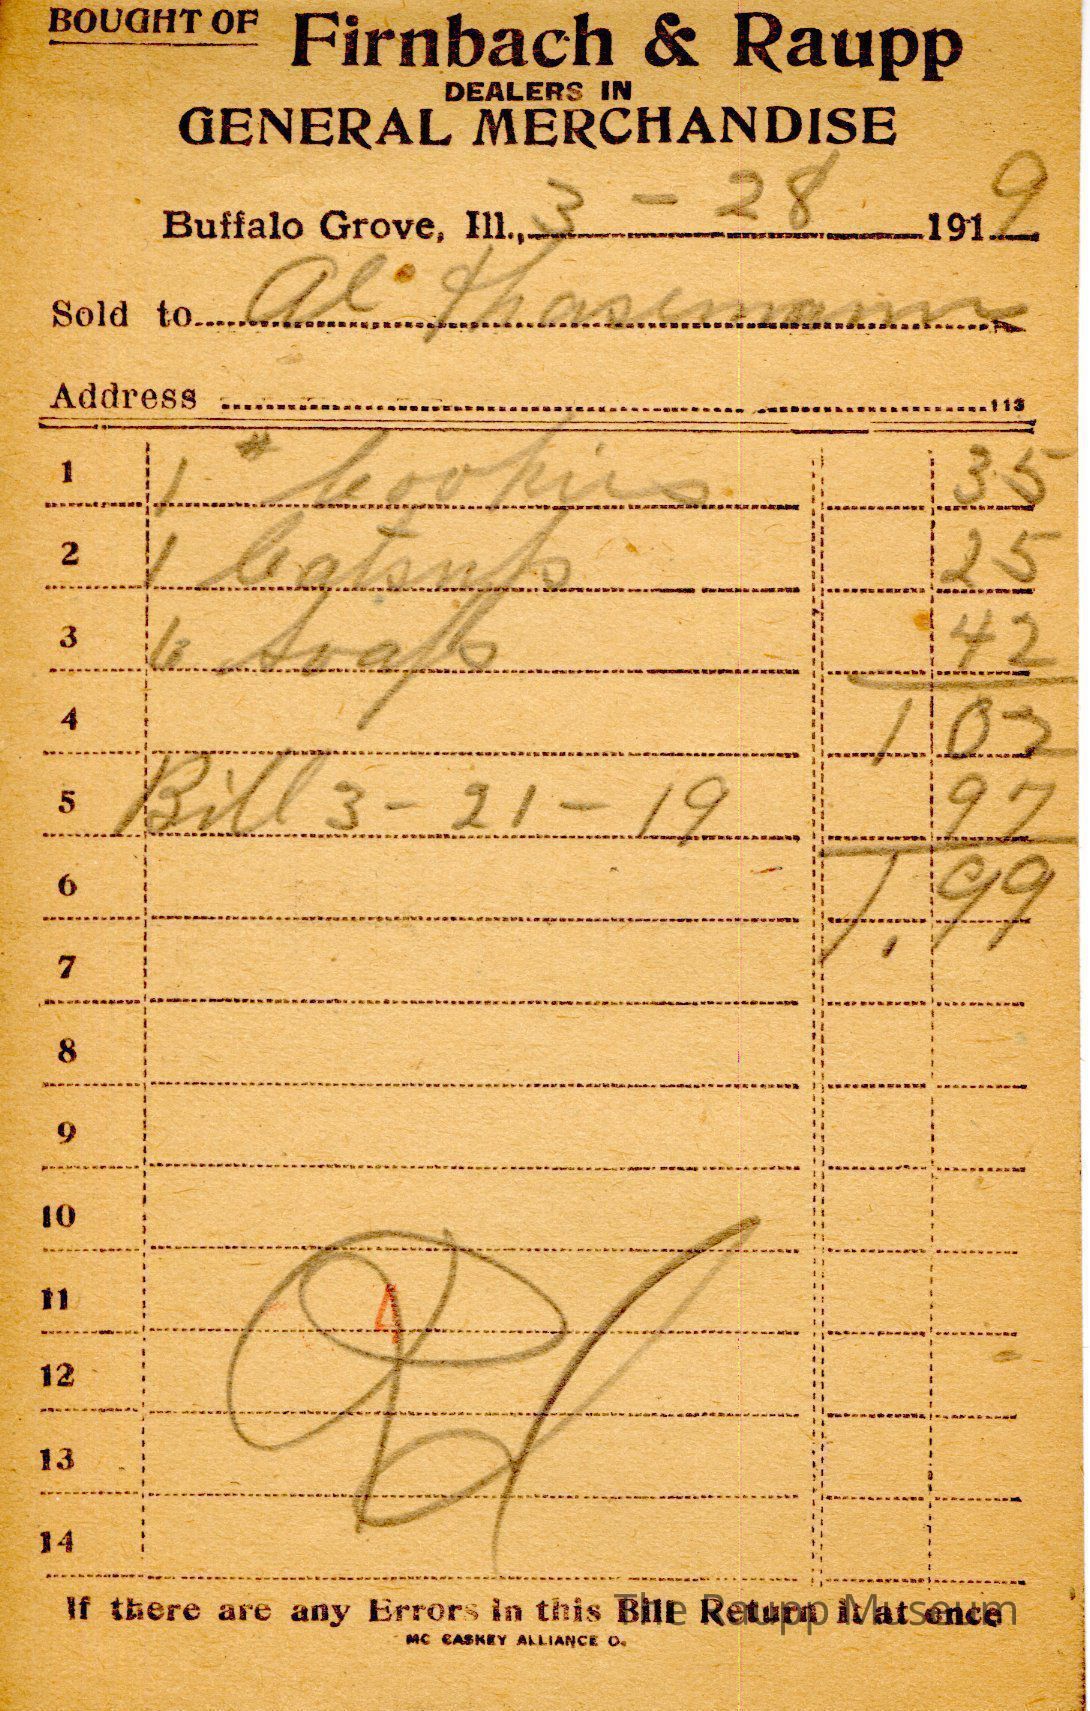 BOUGHT OF Firnbach & Raupp
DEALERS IN
GENERAL MERCHANDISE
Buffalo Grove, Ill., 3 - 28 1919
Sold to Al Thasemann
Address 113
1 1 # Cookies 35
2 1 Catsup 25
3 6 Soaps 42
4 1 02
5 Bill 3 - 21 - 19 97
6 1.99
7
8
9
10
11 4
12
13
14
If there are any Errors in this Bill Return it at once
The Raupp Museum
MC CASKEY ALLIANCE O.